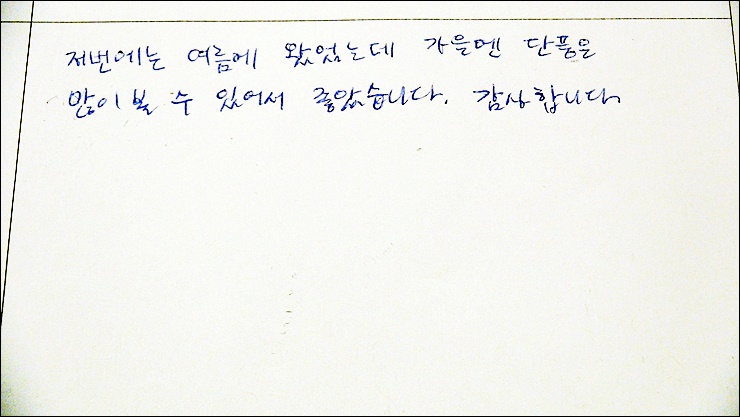 저번에는 여름에 왔었는데 가을엔 단풍을
많이 볼 수 있어서 좋았습니다. 감사합니다.